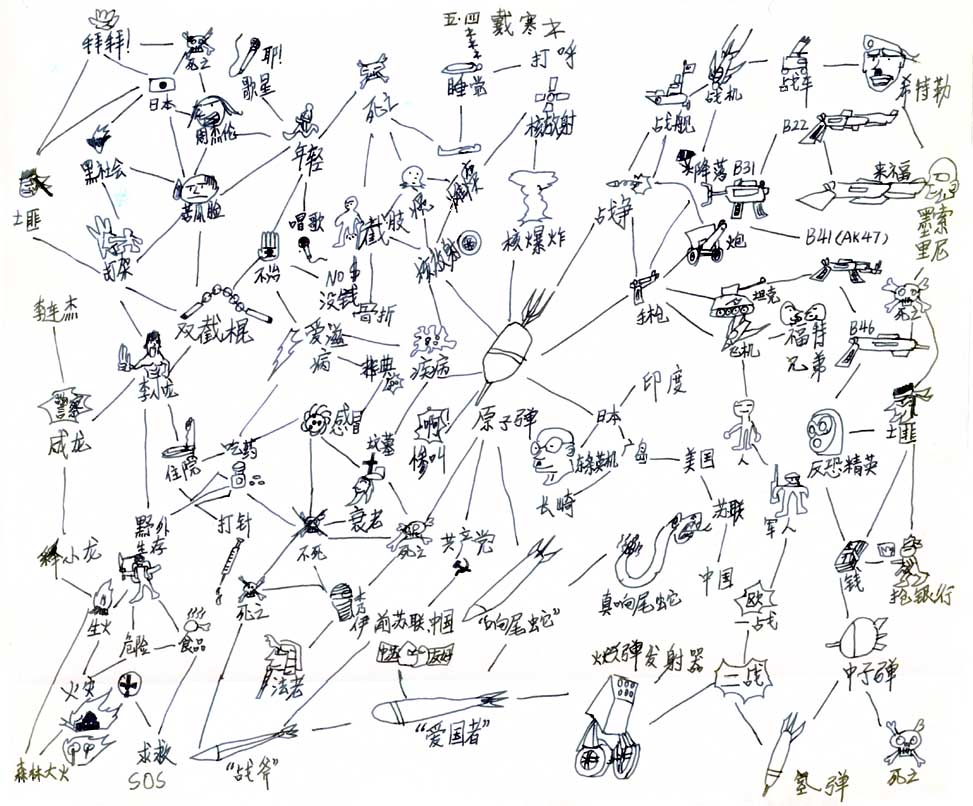 五·四
戴寒
打呼
拜拜!
死亡
耶!
歌星
睡觉
日本
周杰伦
核放射
战舰
战机
战车
希特勒
B22
死亡
年轻
黑社会
苦瓜脸
土匪
降落
B31
来福
墨索
里尼
唱歌
截肢
核爆炸
战争
炮
B41(AK47)
打架
不治
NO $
没钱
骨折
手枪
坦克
死亡
李连杰
双截棍
爱滋
病
疾病
飞机
福特
兄弟
B46
李小龙
警察
成龙
感冒
坟墓
啊!
惨叫
原子弹
日本
印度
东条英机
广岛
美国
人
反恐精英
土匪
住院
吃药
衰老
长崎
苏联
军人
野外
生存
打针
不死
死亡
共产党
中国
钱
抢银行
释小龙
生火
死亡
木乃
伊
前苏联
中国
“响尾蛇”
真响尾蛇
欧
一战
危险
食品
火灾
法老
友好
炮弹发射器
二战
中子弹
森林大火
求救
SOS
“战斧”
“爱国者”
氢弹
死亡